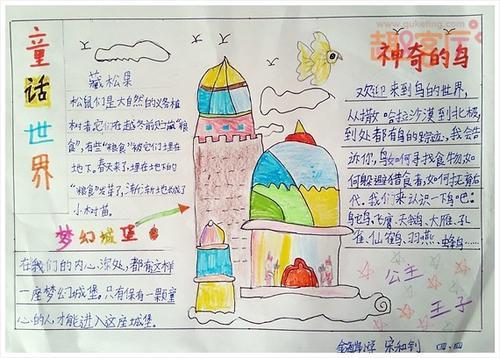 童话世界
藏松果
松鼠们是大自然的义务植
树者,它们在越冬前贮藏“粮
食”,有些“粮食”被它们埋在
地下。春天来了,埋在地下的
“粮食”发芽了,渐渐地长成了
小树苗。
梦幻城堡
在我们的内心深处,都有这样
一座梦幻城堡。只有保有一颗童
心的人,才能进入这座城堡。
www.qukefing.com
神奇的鸟
欢迎来到鸟的世界,
从撒哈拉沙漠到北极,
到处都有鸟的踪迹。我会告
诉你,鸟如何寻找食物,如
何躲避猎食者,如何抚育后
代。我们来认识一下鸟吧:
鸵鸟、飞鹰、天鹅、大雁、孔
雀、仙鹤、羽燕、蜂鸟……
公主
王子
四、四